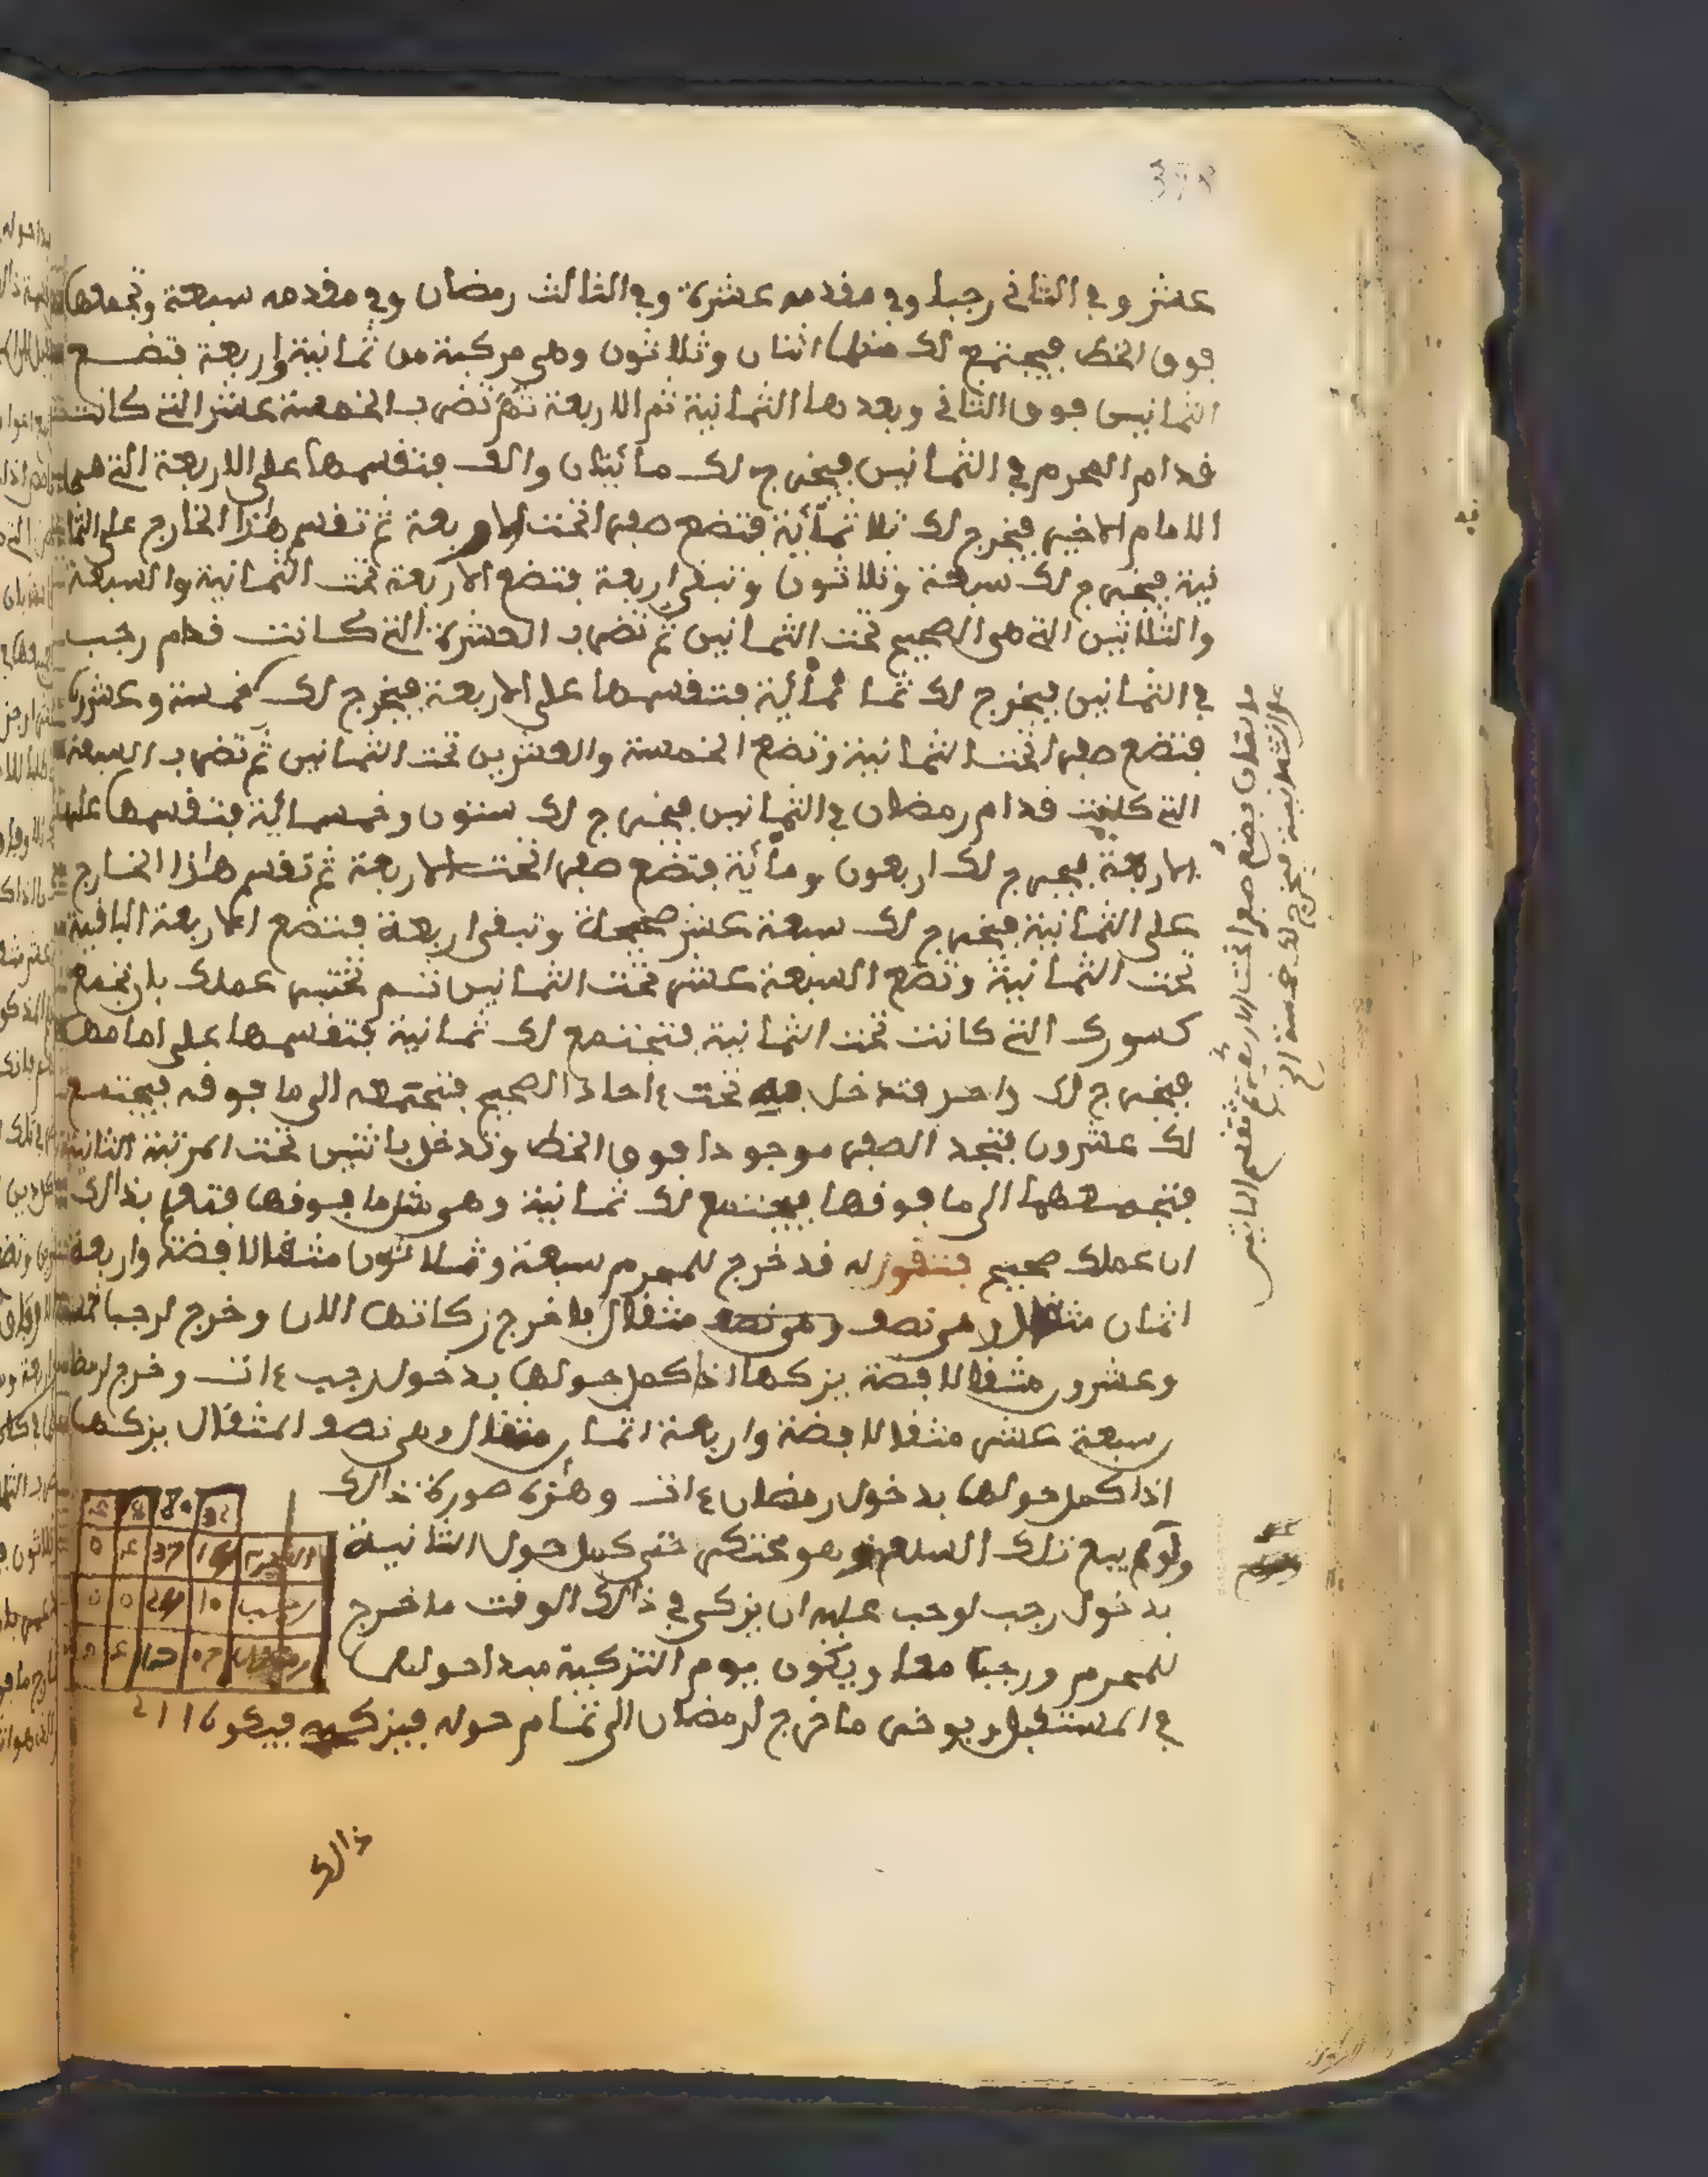 عشر وفي الثاني رجبا وفي مقدمه عشرة وفي الثالث رمضان وفي مقدمه سبعة وتجمعها
فوق الخط فيجتمع لك منها اثنان وثلاثون وهي مركبة من ثمانية واربعة فتضع
الثمانين فوق الثاني وبعدها الثمانية ثم الاربعة ثم تضرب الخمسة عشر التي كانت
قدام المحرم في الثمانين فيخرج لك مائتان والف فتقسمها على الاربعة التي هي
الامام الاخير فيخرج لك ثلاثمائة فتضع صفرا تحت الاربعة ثم تقسم هذا الخارج على الثما
نية فيخرج لك سبعة وثلاثون وتبقى اربعة فتضع الاربعة تحت الثمانية والسبعة
والثلاثين التي هي الصحيح تحت الثمانين ثم تضرب العشرة التي كانت قدام رجب
في الثمانين فيخرج لك ثما نمائة فتقسمها على الاربعة فيخرج لك خمسة وعشرون
فتضع صفرا تحت الثمانية وتضع الخمسة والعشرين تحت الثمانين ثم تضرب السبعة
التي كانت قدام رمضان في الثمانين فيخرج لك ستون وخمسمائة فتقسمها على
الاربعة فيخرج لك اربعون ومائة فتضع صفرا تحت الاربعة ثم تقسم هذا الخارج
على الثمانية فيخرج لك سبعة عشر صحيحة وتبقى اربعة فتضع الاربعة الباقية
تحت الثمانية وتضع السبعة عشر تحت الثمانين ثم تختبر عملك بان تجمع
كسورك التي كانت تحت الثمانية فتجتمع لك ثمانية فتقسمها على امامها
فيخرج لك واحد فتدخل به تحت ءاحاد الصحيح فتجمعه الى ما فوقه فيجتمع
لك عشرون فتجد الصفر موجودا فوق الخط وتدخل باثنين تحت المرتبة الثانية
فتجمعهما الى ما فوقها فيجتمع لك ثمانية وهي مثل ما فوقها فتعلم بذالك
ان عملك صحيح فتقول له قد خرج للمحرم سبعة وثلاثون مثقالا فضة واربعة
اثمان مثقال وهي نصف وهي نصف مثقال فاخرج زكاتها الان وخرج لرجب خمسة
وعشرون مثقالا فضة يزكها اذا كمل حولها بدخول رجب ءات وخرج لرمضان
سبعة عشر مثقالا فضة واربعة اثمان مثقال وهي نصف المثقال يزكها
اذا كمل حولها بدخول رمضان ءات وهذه صورة ذالك
ولو لم يبع تلك السلعة وهو محتكر حتى كمل حول الثانية
بدخول رجب لوجب عليه ان يزكي في ذالك الوقت ما خرج
للمحرم ورجب معا ويكون يوم التزكية مبدا حولها
في المستقبل ويوخر ما خرج لرمضان الى تمام حوله فيزكيه فيكو
ذالك